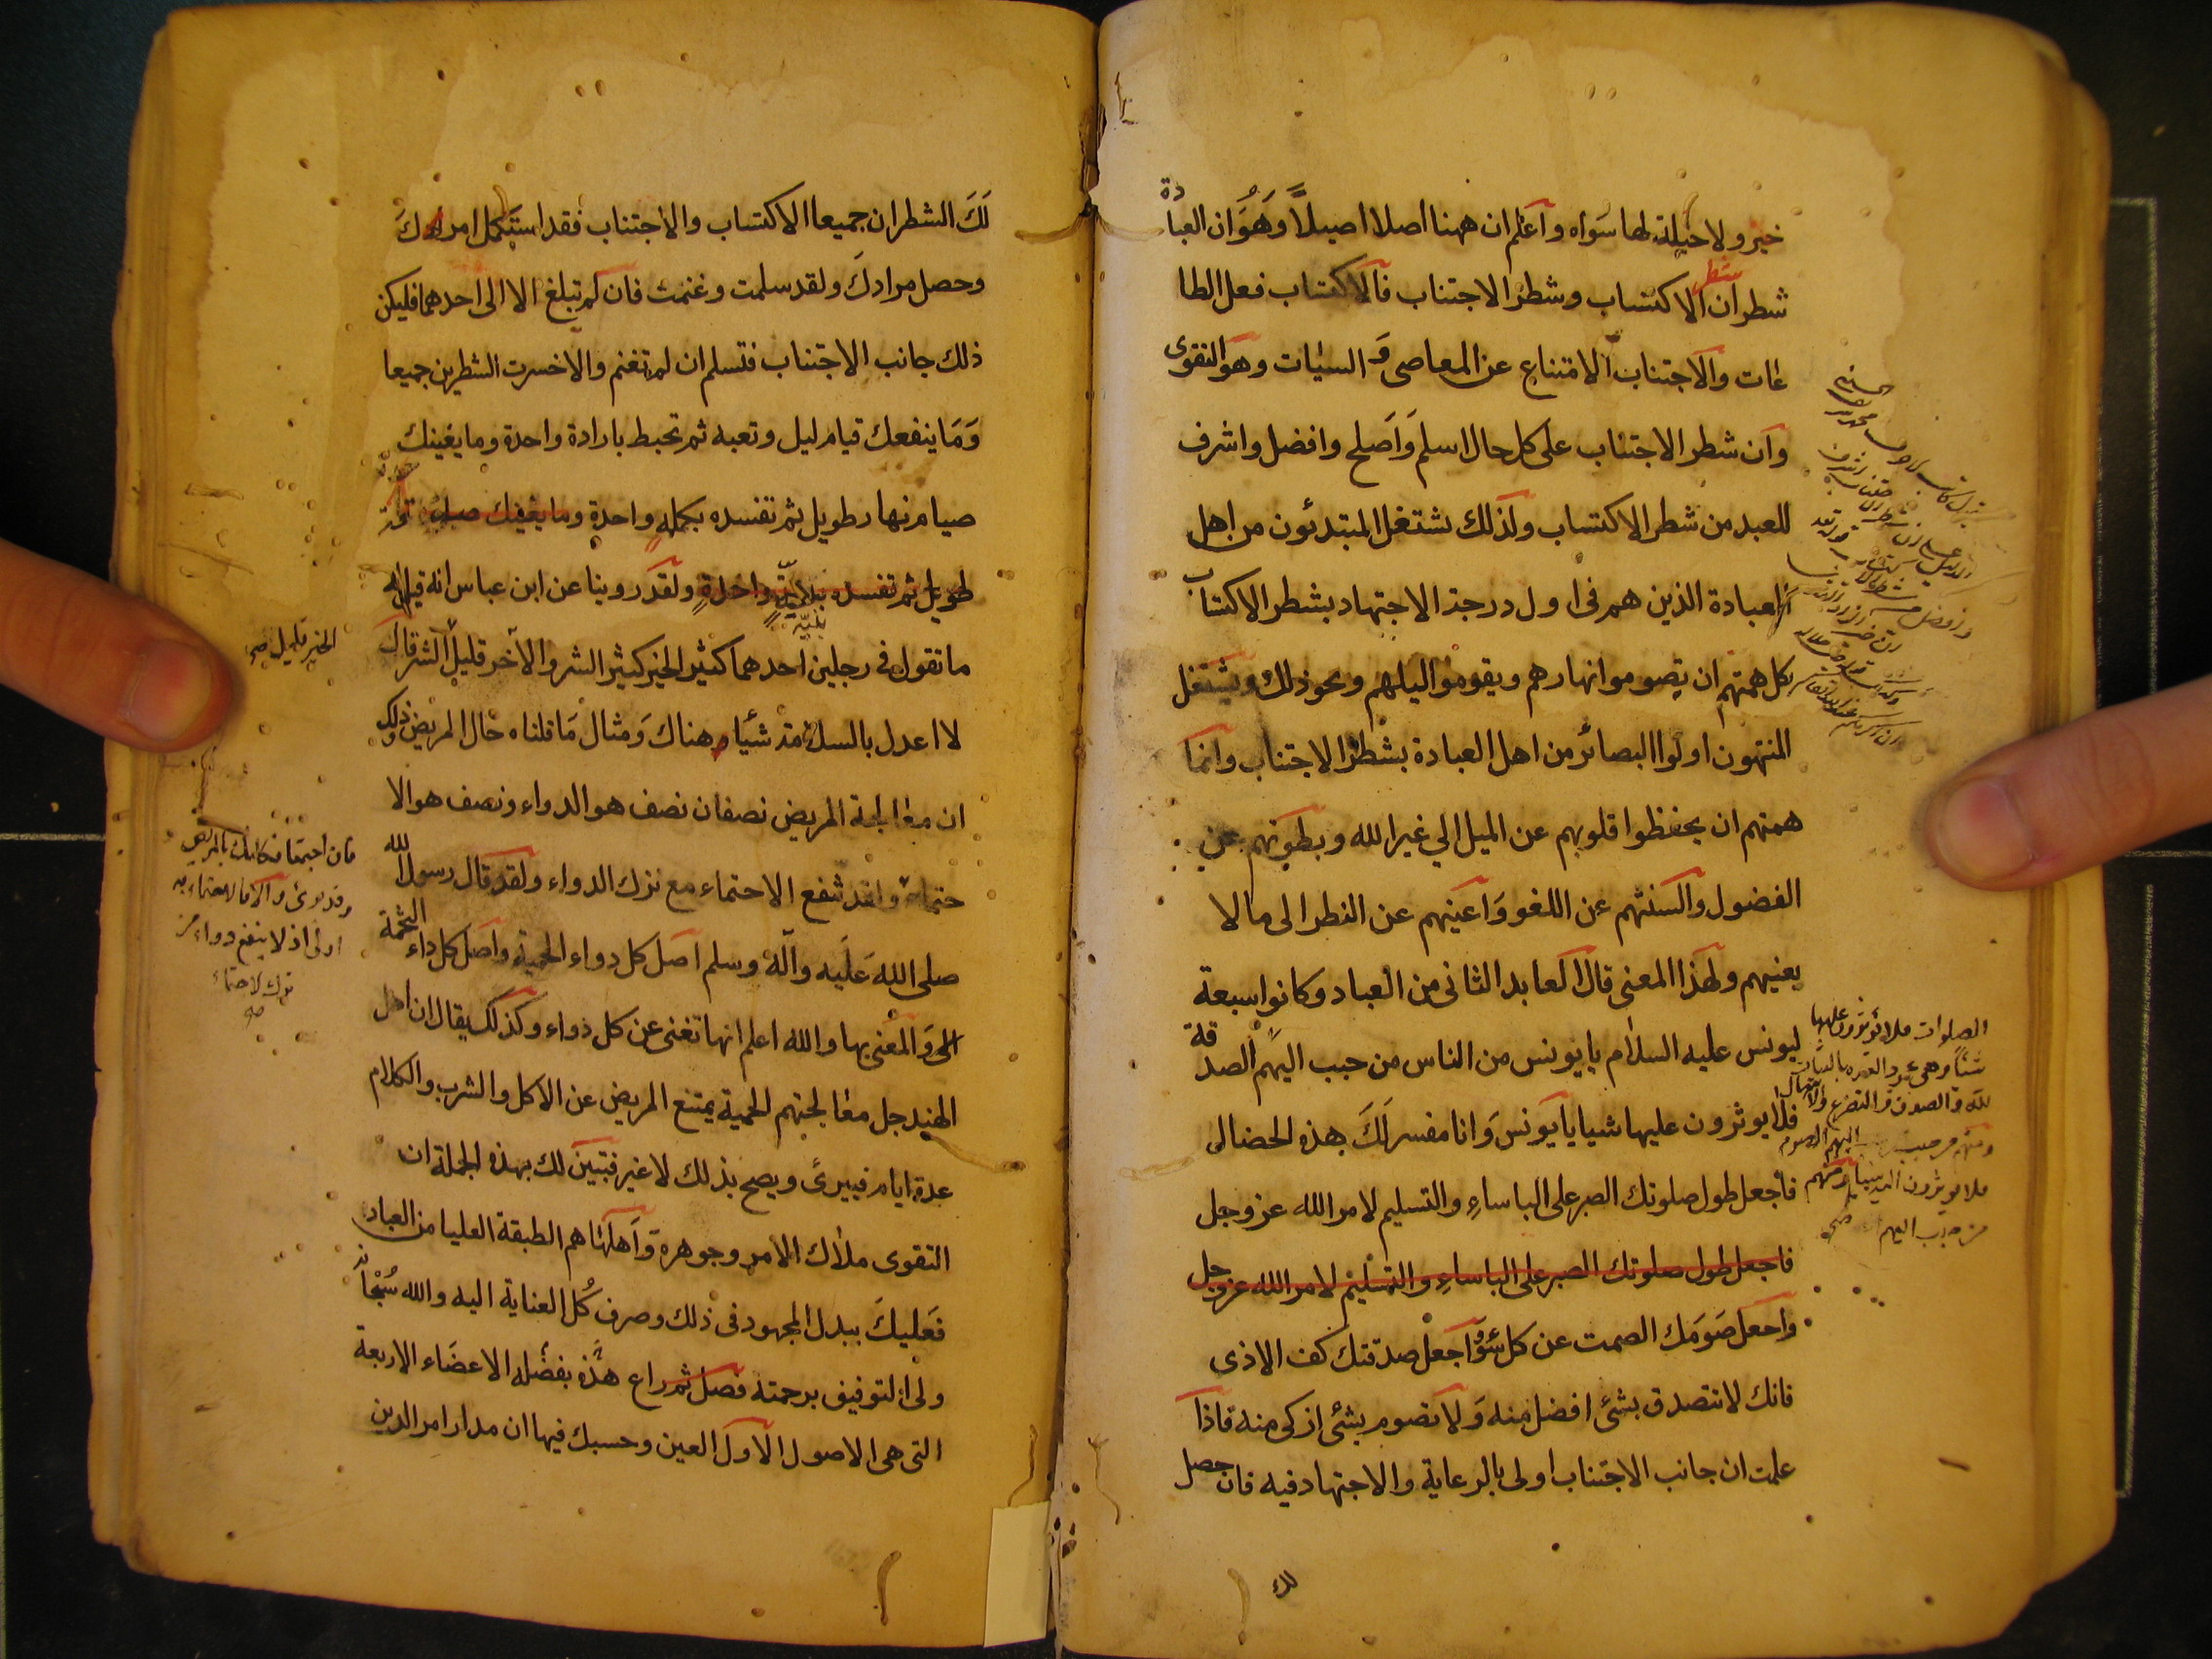 خير ولا حيلة لها سواه واعلم ان ههنا اصلا اصيلاً وهُوَ ان العبادة
شطران شطر الاكتساب وشطر الاجتناب فالاكتساب فعل الطا
عات والاجتناب الامتناع عن المعاصى و السيٰات وهو التقوى
وان شطر الاجتناب على كل حال اسلم وَاَصلح وافضل واشرف
للعبد من شطر الاكتساب ولذلك شتغل المبتدئون من اهل
العبادة الذين هم فى اول درجة الاجتهاد بشطر الاكتساب
كل همتهم ان يصوموا نهارهم ويقوموا ليلهم ونحو ذلك ويشتغل
المنتهون اولوا البصائر من اهل العبادة بشطر الاجتناب وانما
همتهم ان يحفظوا قلوبهم عن الميل الي غير الله وبطونهم عن
الفضول والسنتهم عن اللغو وَاعينهم عن النظر الى ما لا
يعنيهم ولهذا المعنى قال العابد الثانى من العباد وكانوا سبعة
ليونس عليه السلام يا يونس من الناس من حبب اليهم الصدقة
فلا يوثرون عليها شيا يا يونس وَانا مفسر لَكَ هذه الخصالى
فاجعل طول صلوتك الصبر على الباساءِ والتسليم لامر الله عز وجل
فاجعل طول صلوتك الصبر على الباساءِ والتسليم لامر الله عز وجل
واجعل صَومَك الصمت عن كل سُوٓءٍ واجعل صدقتك كف الاذى
فانك لا تتصدق بشئ افضل منه وَلا تصوم بشئ ازكى منه فاذا
علمت ان جانب الاجتناب اولى بالرعاية والاجتهاد فيه فان حصل
لك
الصلوات فلا يؤثرون عليها
شيئاً وهى عمود
لله والصدق والتضرع والابتهال
ومنهم من حبب اليهم الصوم
فلا يوثرون عليه شيئا ومنهم
من حبب اليهم صح
لَكَ الشطران جميعا الاكتساب والاجتناب فقد استكمل امرك
وحصل مرادكَ ولقد سلمت وغنمت فان لم تبلغ الا الى احدهما فليكن
ذلك جانب الاجتناب فتسلم ان لم تغنم والا خسرت الشطرين جميعا
وَمَا ينفعك قيام ليل وتعبه ثم تحبط بارادة واحدة وما يغينك
صيام نهار طويل ثم تفسده بكلمة واحدة وما يغينك صيام
طويل ثم تفسده بلاغيّةٍ واحدةٍ ولقد روينا عن ابن عباس انه قيل له
ما تقول فى رجلين احدهما كثير الخير كثير الشر والآخر قليل الشر قال
لا اعدل بالسلامة شئيا وهناك وَمثال مَا قلناه حال المريض وذلك
ان معالجة المريض نصفان نصف هو الدواء ونصف هو الا
حتماء وقد شفع الاحتماء مع نزك الدواء ولقد قال رسول الله
صلى الله عَلَيه وآله وسلم اصل كل دواء الحمية واصل كل داء التخمة
وَالمعنى بها والله اعلم انها تغنى عن كل دواء وكذلك يقال ان اهل
الهند جل معالجتهم الحمية يمتنع المريض عن الاكل والشرب والكلام
عدة ايام فيبرئ ويصح بذلك لا غير فتبين لك بهذه الجملة ان
التقوى ملاك الامر وجوهره وَاَهلها هم الطبقة العليا من العباد
فَعليكَ ببدل المجهود فى ذلك وصرف كُل العناية اليه والله سُبْحانه
ولى التوفيق برحمته فصل ثم راع هذه بفضله الاعضَاء الاربعة
التى هى الاصول الاول العين وحسبك فيها ان مدار امر الدين
الخير قليل صح
فان اجتمعا فكانك بالمريض
وقد برئ والا فالاحتماء به
اولى اذ لا ينفع دواء مع
ترك الاحتماء
صح